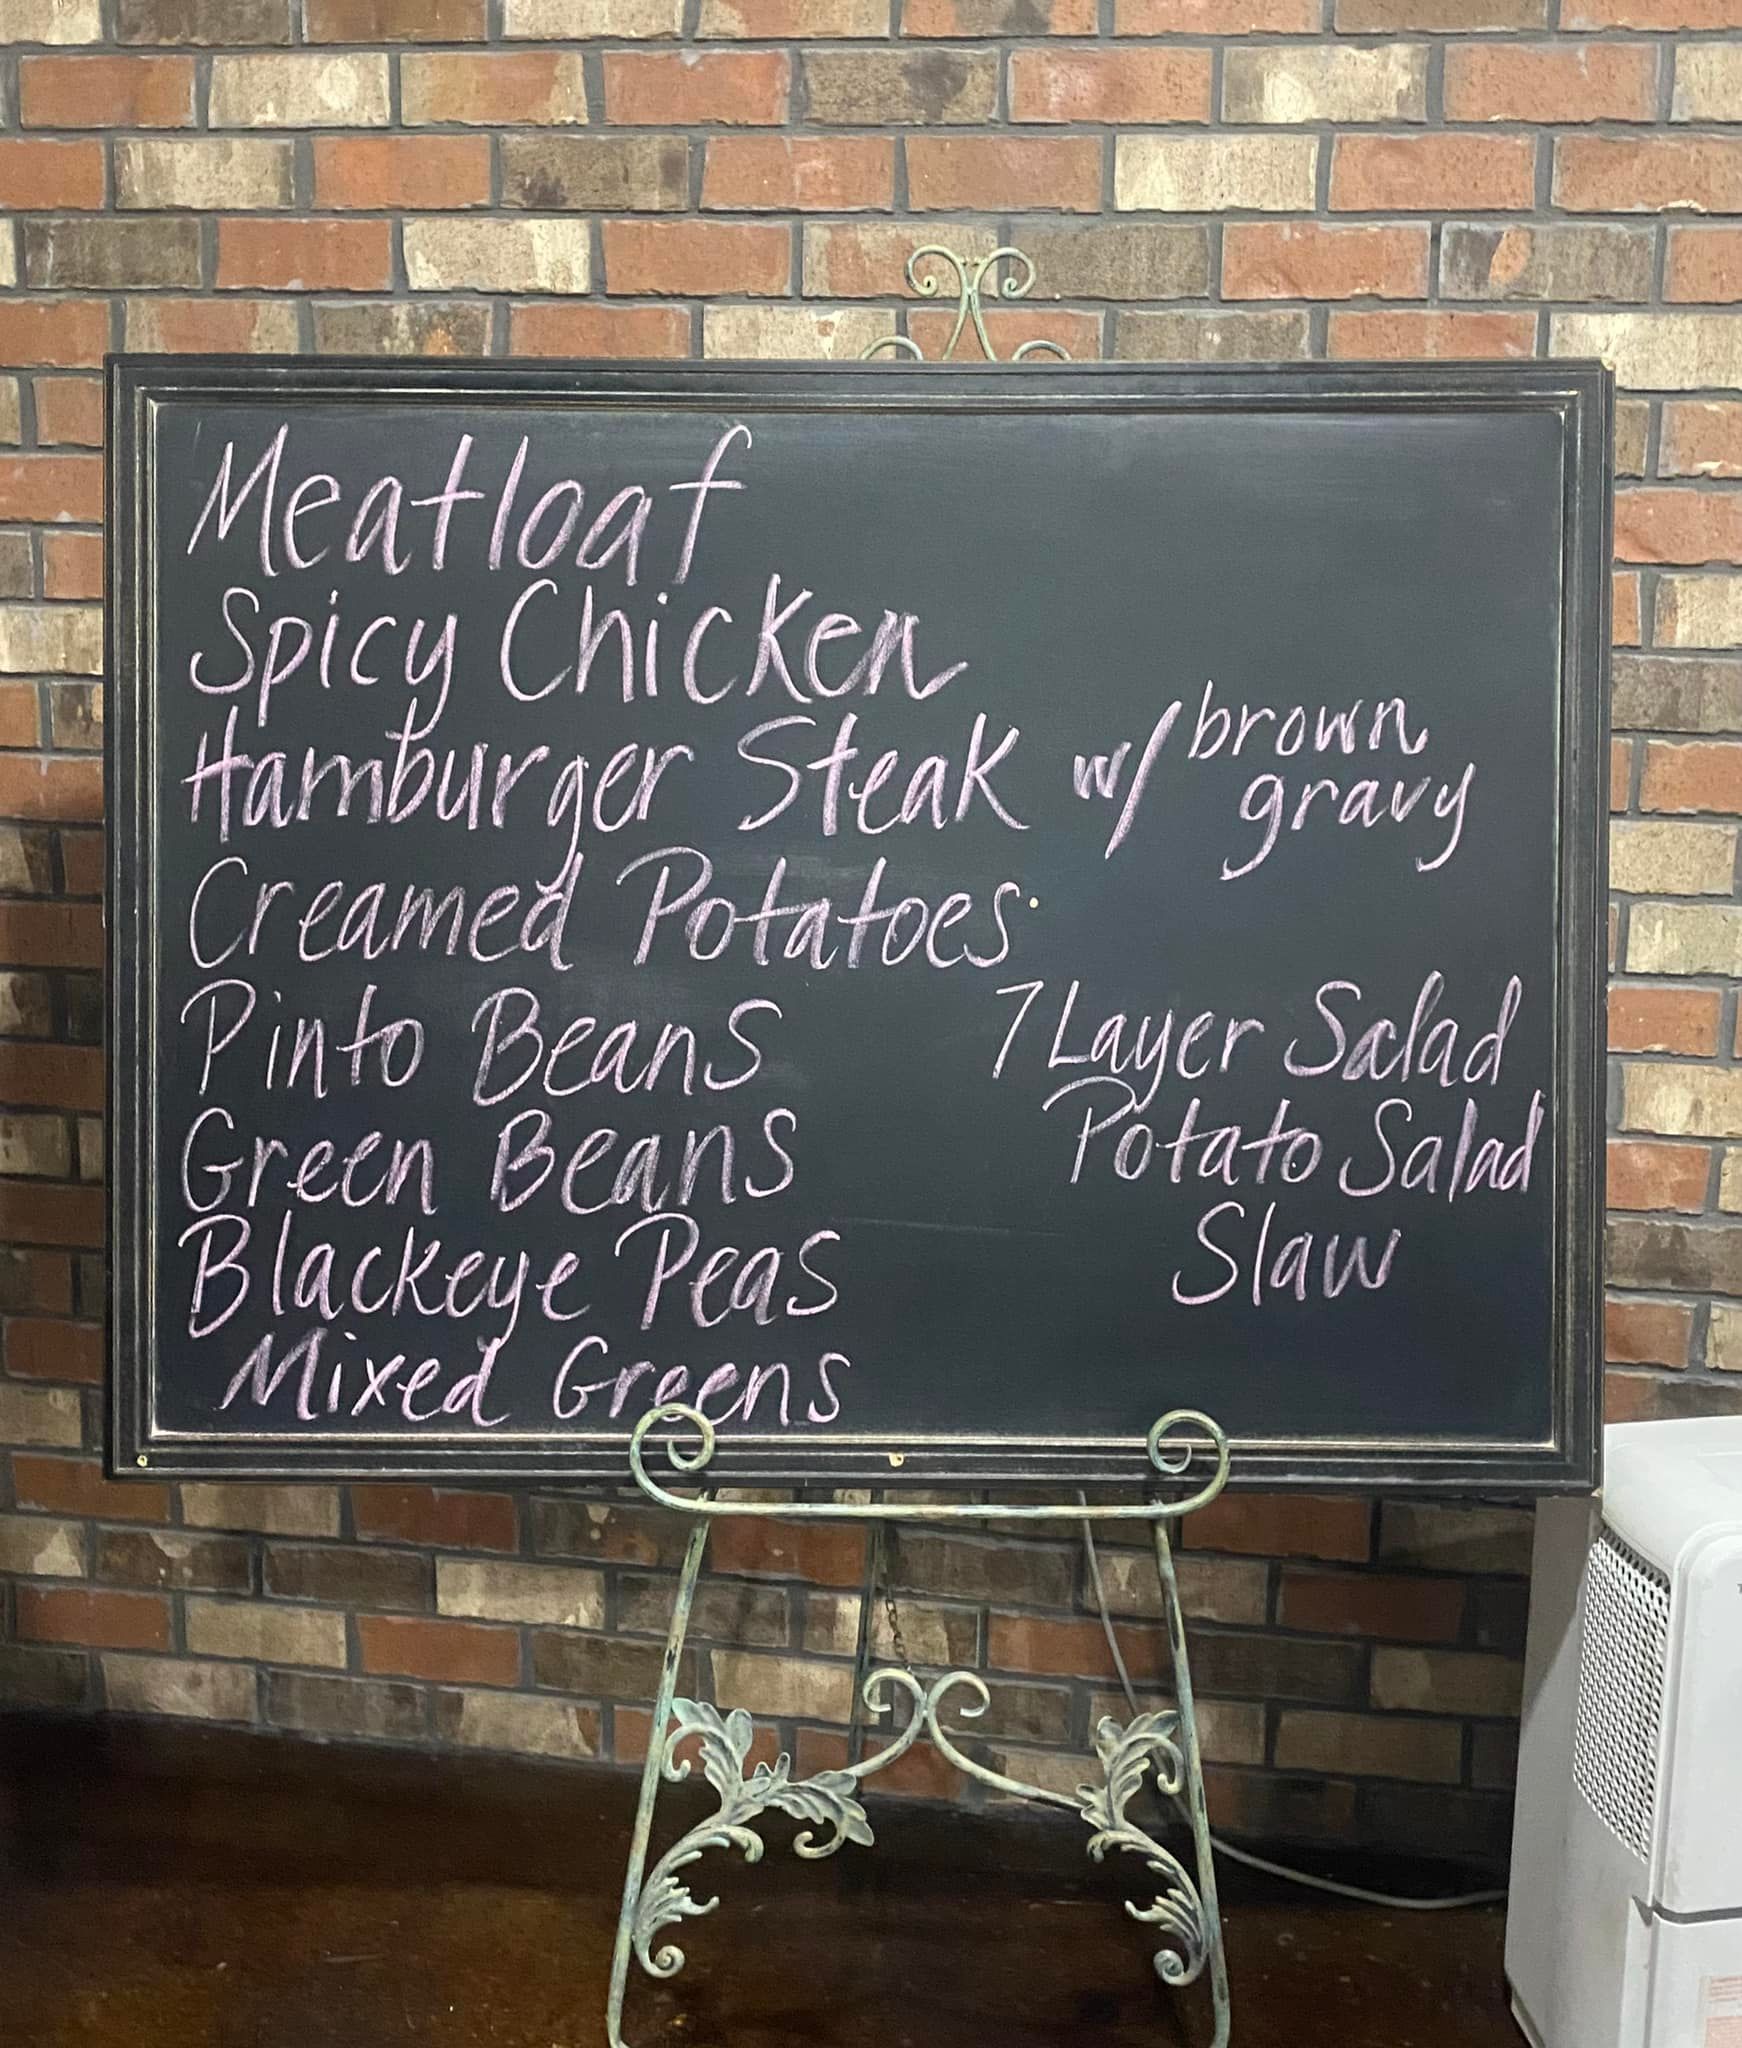 Meatloaf
Spicy Chicken
Hamburger Steak w/ brown gravy
Creamed Potatoes
Pinto Beans
Green Beans
Blackeye Peas
Mixed Greens
7 Layer Salad
Potato Salad
Slaw